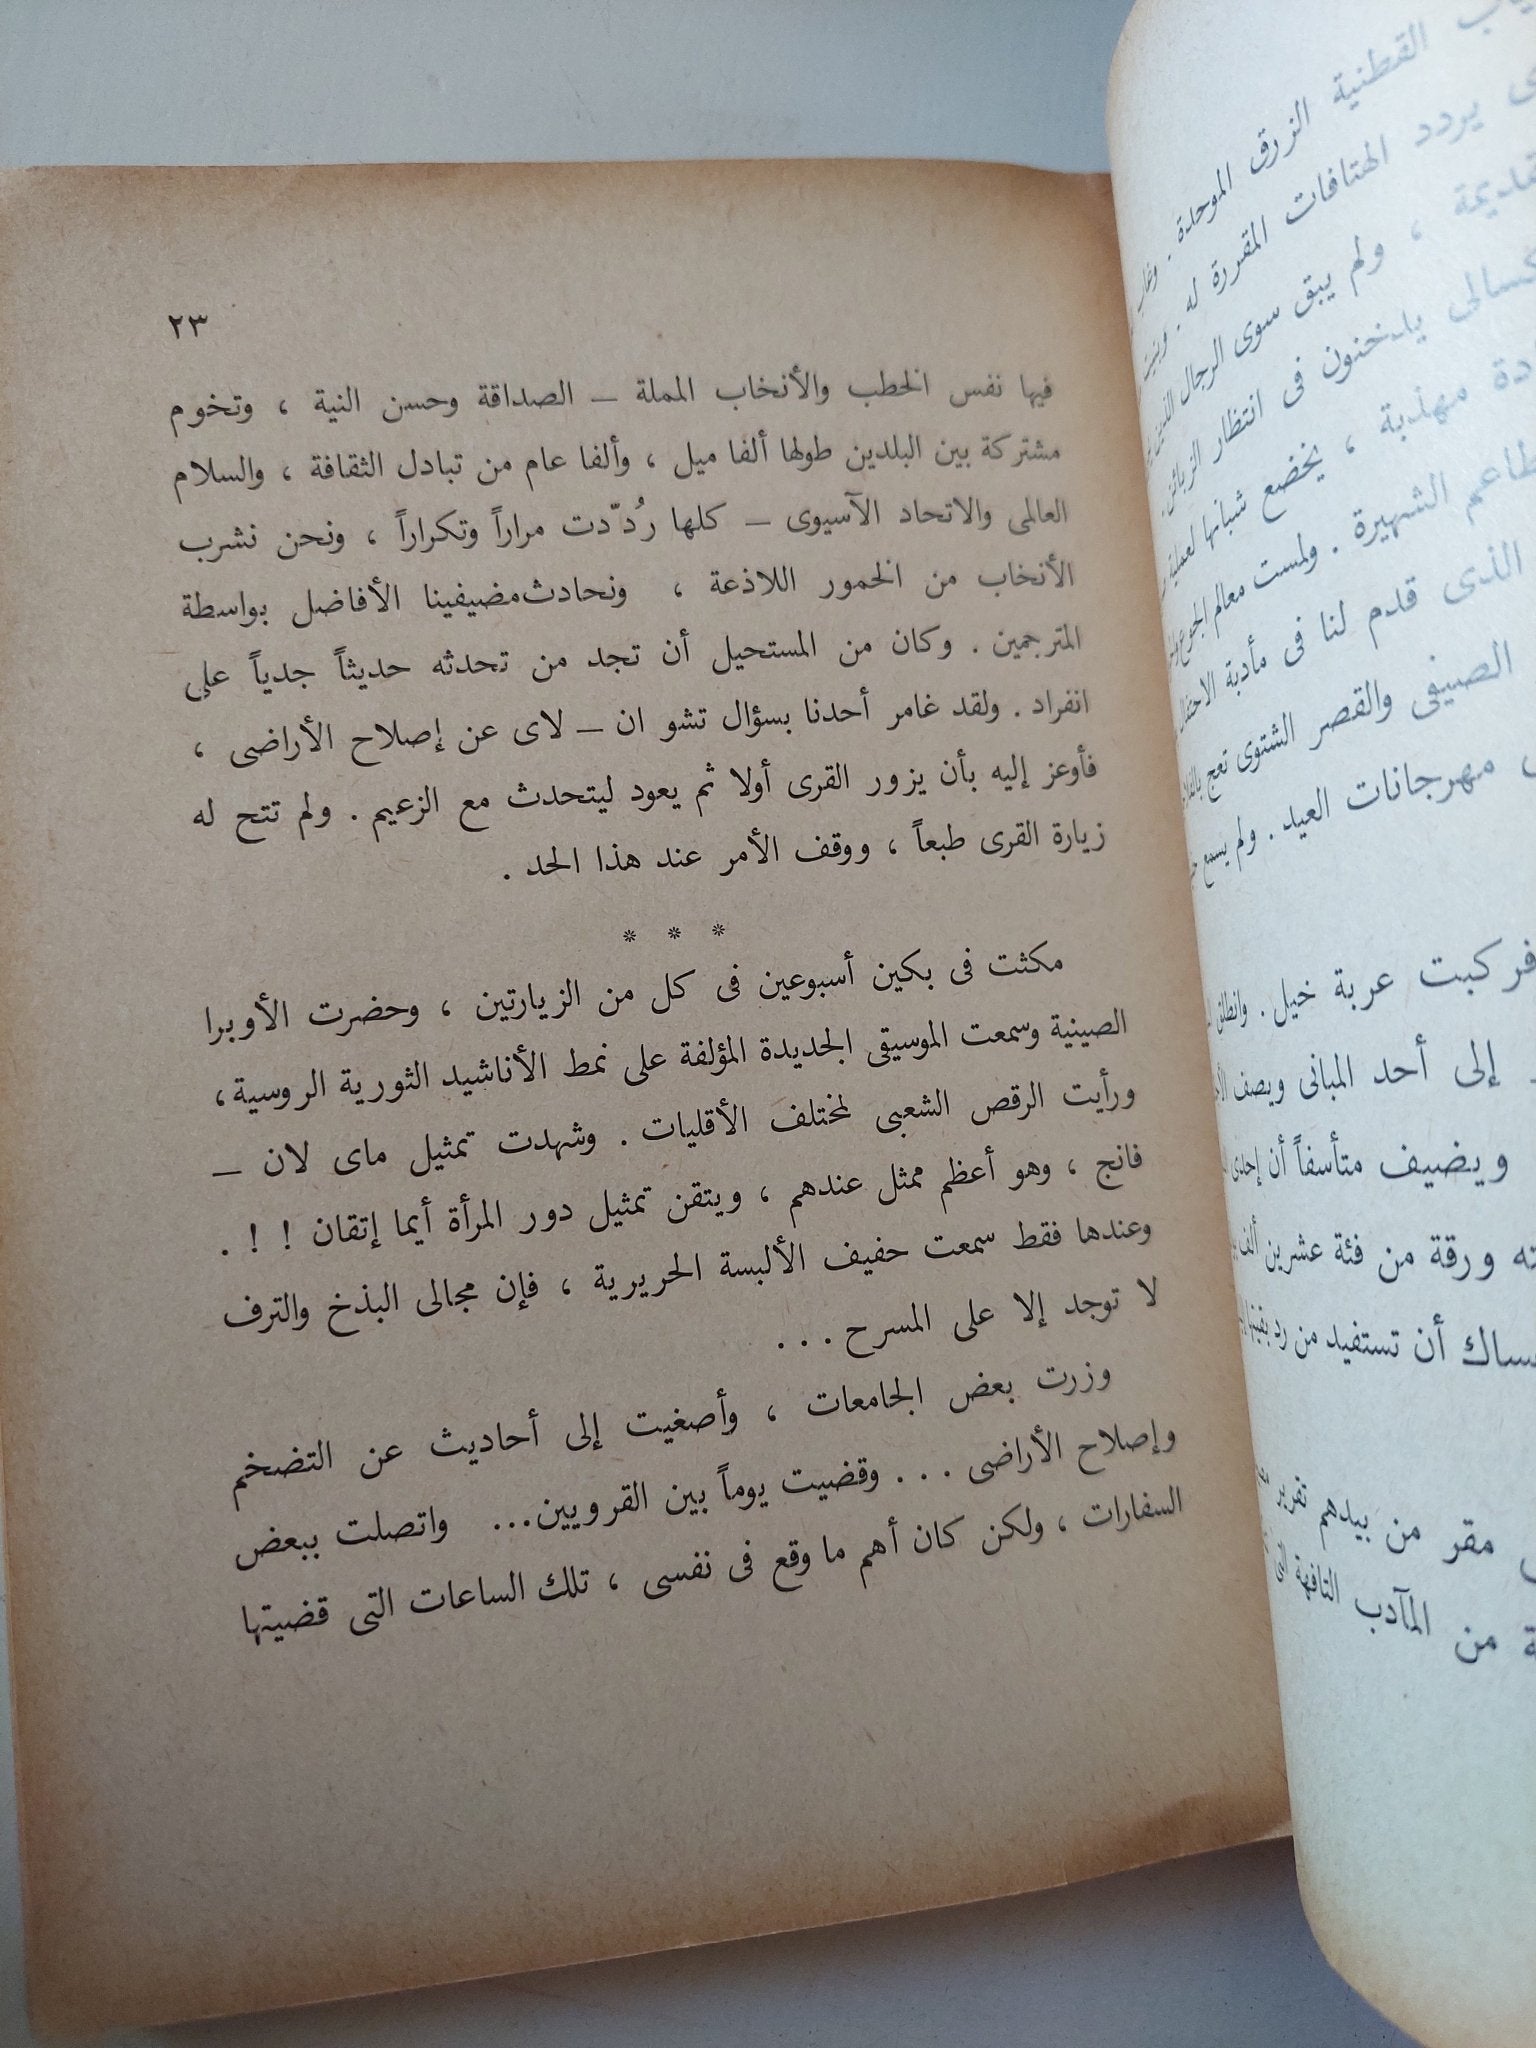 القطنية الزرق الموحدة .
يردد الهتافات المقررة له . وبنيت
، ولم يبق سوى الرجال
يدخنون فى انتظار الزبائن .
مهذبة ، يخضع شبانها لعملية
الشهيرة . ولمست معالم الجوع
الذى قدم لنا فى مأدبة
الصينى والقصر الشتوى تعج
مهرجانات العيد . ولم يسمع
فركبت عربة خيل . وانطلق
إلى أحد المبانى ويصف
ويضيف متأسفاً أن إحدى
ورقة من فئة عشرين ألف
أن تستفيد من رد
مقر من بيدهم تقرير
من المآدب التافهة التى
٢٣
فيها نفس الخطب والأنخاب المملة – الصداقة وحسن النية ، وتخوم
مشتركة بين البلدين طولها ألفا ميل ، وألفا عام من تبادل الثقافة ، والسلام
العالمى والاتحاد الآسيوى – كلها رُدّدت مراراً وتكراراً ، ونحن نشرب
الأنخاب من الخمور اللاذعة ، ونحادث مضيفينا الأفاضل بواسطة
المترجمين . وكان من المستحيل أن تجد من تحدثه حديثاً جدياً على
انفراد . ولقد غامر أحدنا بسؤال تشو ان – لاى عن إصلاح الأراضى ،
فأوعز إليه بأن يزور القرى أولا ثم يعود ليتحدث مع الزعيم . ولم تتح له
زيارة القرى طبعاً ، ووقف الأمر عند هذا الحد .
* * *
مكثت فى بكين أسبوعين فى كل من الزيارتين ، وحضرت الأوبرا
الصينية وسمعت الموسيقى الجديدة المؤلفة على نمط الأناشيد الثورية الروسية ،
ورأيت الرقص الشعبى لمختلف الأقليات . وشهدت تمثيل ماى لان –
فانج ، وهو أعظم ممثل عندهم ، ويتقن تمثيل دور المرأة أيما إتقان ! ! .
وعندها فقط سمعت حفيف الألبسة الحريرية ، فإن مجالى البذخ والترف
لا توجد إلا على المسرح . . .
وزرت بعض الجامعات ، وأصغيت إلى أحاديث عن التضخم
وإصلاح الأراضى . . . وقضيت يوماً بين القرويين... واتصلت ببعض
السفارات ، ولكن كان أهم ما وقع فى نفسى ، تلك الساعات التى قضيتها